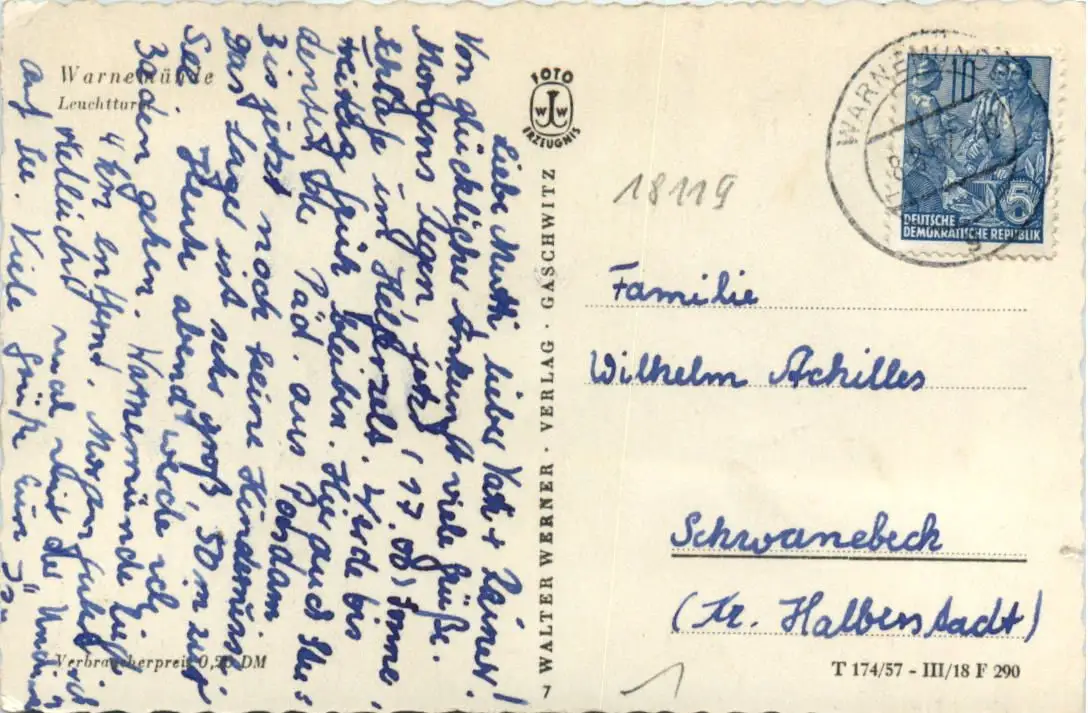 Warnemünde
Leuchtturm
Liebe Mutti, lieber Vati + Rainer!
Von glücklicher Ankunft viele Grüße.
Morgens gegen
schlafe im Helferzelt. Werde bis
Freitag hier bleiben. Hier sind
Päd. aus Potsdam
Bis jetzt noch keine Hindernisse.
Das Lager ist sehr groß, 50 m zur
See. Heute abend werde ich
Baden gehen. Warnemünde liegt
4 km entfernt. Morgen fahre ich
vielleicht mal mit der
auf See. Viele Grüße Eure
Verbraucherpreis 0,25 DM
FOTO
WJW
ERZEUGNIS
7 WALTER WERNER · VERLAG · GASCHWITZ
18119
WARNEMÜNDE
10
5
DEUTSCHE
DEMOKRATISCHE REPUBLIK
Familie
Wilhelm Achilles
Schwanebeck
(Kr. Halberstadt)
T 174/57 - III/18 F 290
1